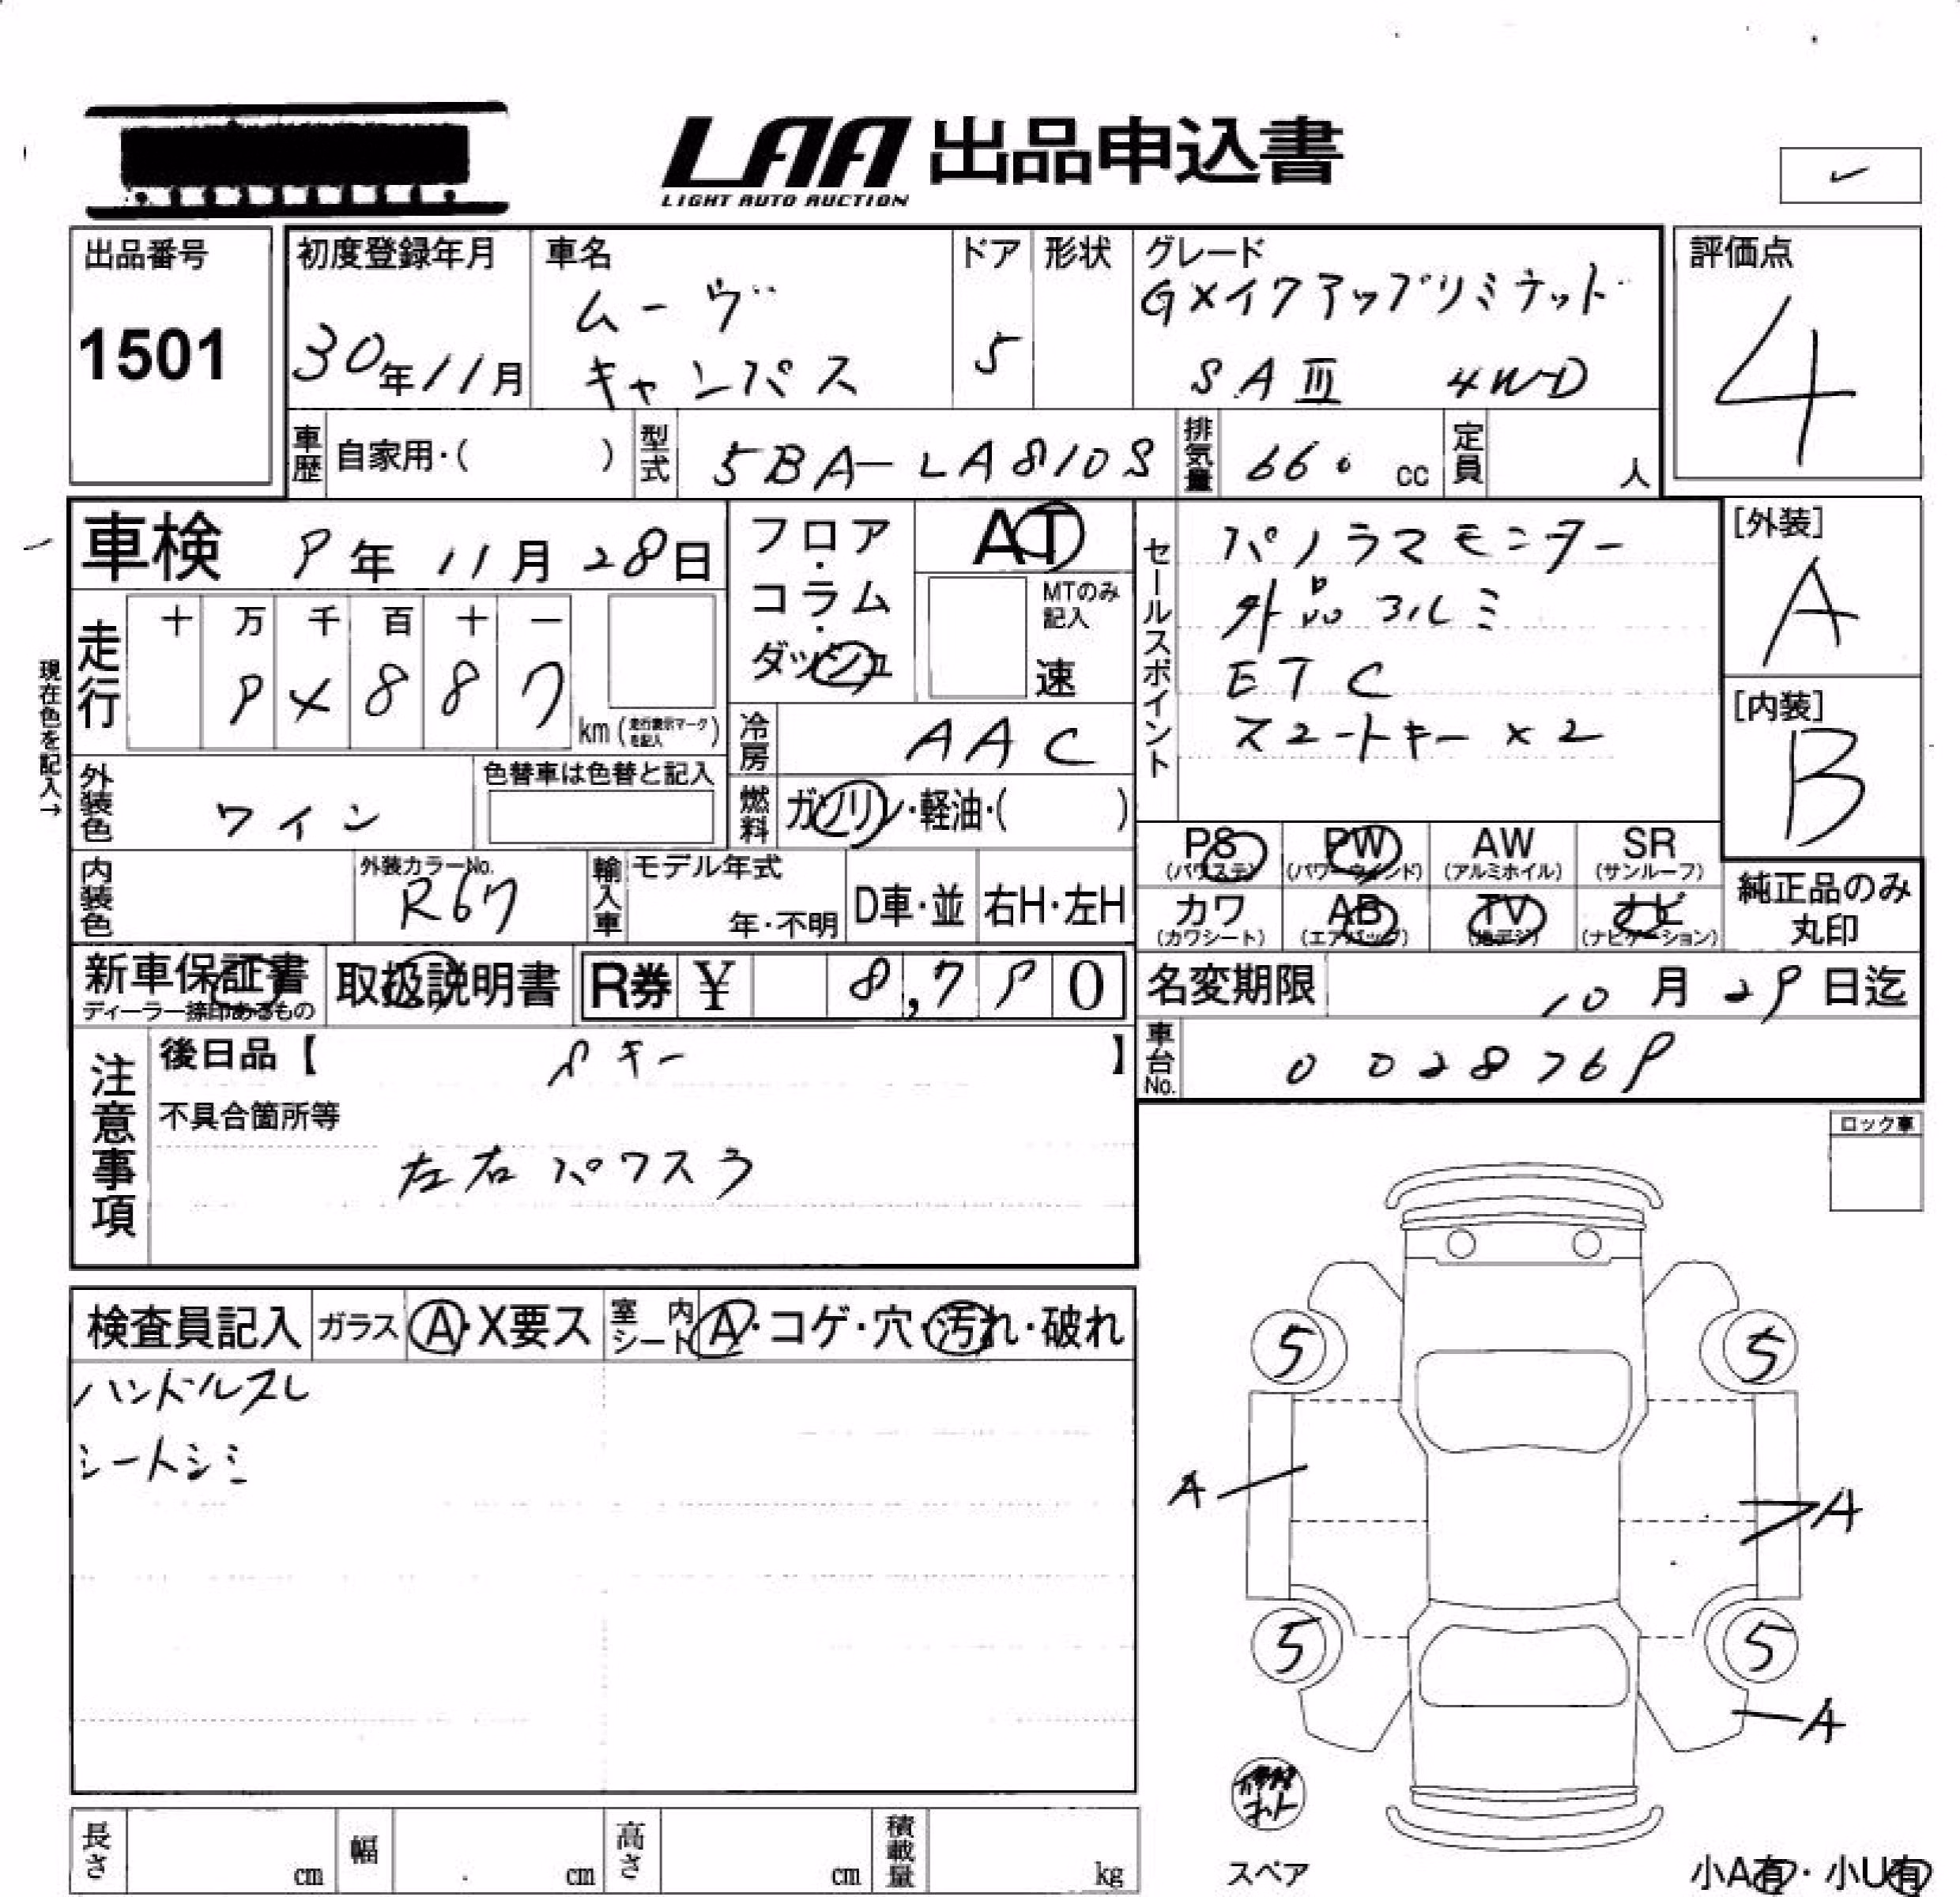 LAA 出品申込書
LIGHT AUTO AUCTION
出品番号
1501
初度登録年月
30年11月
車名
ムーヴ
キャンバス
ドア
5
形状
グレード
Gメイクアップリミテッド
SAⅢ 4WD
評価点
4
車歴 自家用・( )
型式 5BA-LA810S
排気量 660 cc
定員 人
車検 9年11月28日
フロア・コラム・ダッシュ
AT
MTのみ記入
速
セールスポイント
パノラマモニター
外品アルミ
ETC
スマートキー×2
[外装]
A
[内装]
B
現在色を記入→
走行
十 万 千 百 十 一
887
km (走行表示マークを記入)
冷房 AAC
外装色 ワイン
色替車は色替と記入
燃料 ガソリン・軽油・( )
PS (パワステ) PW (パワーウィンド) AW (アルミホイル) SR (サンルーフ)
カワ (カワシート) AB (エアバッグ) TV (地デジ) ナビ (ナビゲーション)
純正品のみ
丸印
内装色
外装カラーNo.
R67
輸入車
モデル年式
年・不明
D車・並
右H・左H
新車保証書
ディーラー捺印あるもの
取扱説明書
R券 ¥ 8,790
名変期限 10月29日迄
車台No. 0028769
注意事項
後日品【 キー 】
不具合箇所等
左右パワスラ
ロック車
検査員記入
ガラス A・X要ス
室内シート A・コゲ・穴・汚れ・破れ
ハンドルスレ
シートシミ
5 5
A A
5 5
A
スペア
小A有・小U有
長さ cm
幅 cm
高さ cm
積載量 kg